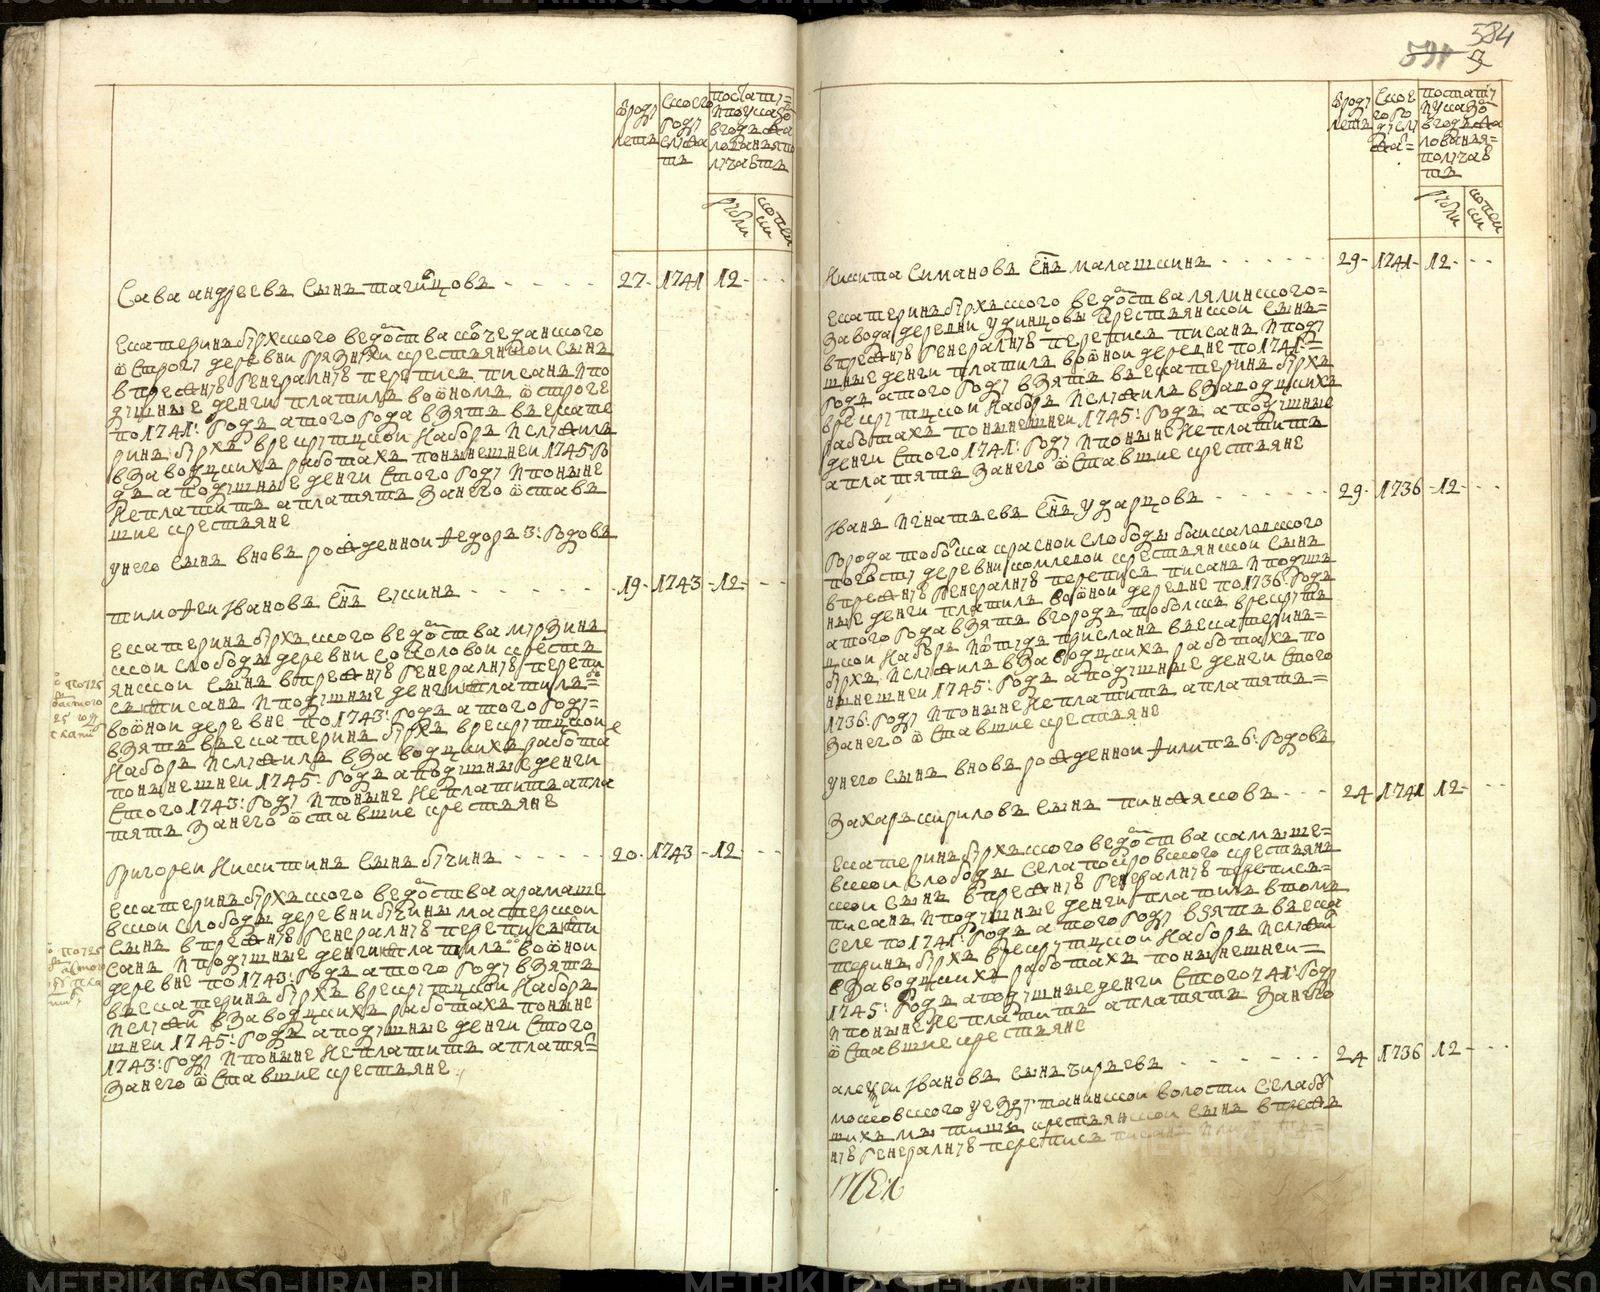 584
531
ѿроду летъ
с коего году служитъ
по стату и по указу в годъ жалованья получаютъ
рубли
копеики
Сава андреевъ сынъ тагилцовъ 27 1741 12
Екатеринъбурхского ведомства колчеданского
острогу деревни грязнухи крестьянскои сынъ
в прежнюю генералную перепись писанъ и по
душные деньги платилъ в оном острогѣ
по 1741: годъ а того года взятъ в екате
ринъбурхъ в рекрутцкои наборъ и служилъ
в заводцкихъ работахъ по нынешнеи 1745 го
дъ а подушные денги с того году и поныне
не платитъ а платятъ за него оставъ
шие крестьяне
у него сынъ вновь рожденнои Федоръ 3: годовъ
тимофеи Ивановъ снъ 19 1743 12
Екатеринъбурхского ведомства мурзинъ
скои слободы деревни соколовои кресть
янскои сынъ в прежнюю генералную перепи
сь писанъ и подушные денги платилъ
в онои деревне по 1743: годъ а того году
взятъ в екатеринъбурхъ в рекрутцкои
наборъ и служилъ в заводцкихъ работа
по нынешнеи 1745: годъ а подушные денги
с того 1743: году и поныне не платитъ а пла
тятъ за него оставшие крестьяне
Григореи Никитинъ сынъ бучинъ 20 1743 12
Екатеринъбурхского ведомства арамаше
вскои слободы деревни бучины мастерскои
сынъ в прежнюю генералную перепись пи
санъ и подушные денги платилъ в онои
деревне по 1743: годъ а того году взятъ
в екатеринъбурхъ в рекрутцкои наборъ
и служи в заводцкихъ работахъ по ныне
шнеи 1745: годъ а подушные денги с того
1743: году и поныне не платитъ а платя
за него оставшие крестьяне
ѿроду летъ
с коего году служ
по стату и указу в годъ жалованья получаютъ
рубли
копеики
Никита Симановъ снъ малашкинъ 29 1741 12
Екатеринъбурхского ведомства лялинского
завода деревни удинцовы крестьянскои сынъ
в прежнюю генералную перепись писанъ и поду
шные денги платилъ в онои деревне по 1741:
годъ а того году взятъ в екатеринъбурхъ
в рекрутцкои наборъ и служилъ в заводцкихъ
работахъ по нынешнеи 1745: годъ а подушные
денги с того 1741: году и поныне не платитъ
а платятъ за него оставшие крестьяне
Иванъ Игнатьевъ снъ ударцовъ 29 1736 12
города тоболска краснои слободы
погосту деревни крестьянскои сынъ
в прежнюю генералную перепись писанъ и подуш
ные денги платилъ в онои деревне по 1736: годъ
а того года взятъ в городъ тоболскъ в рекрут
цкои наборъ и оттуду присланъ в екатеринъ
бурхъ и служилъ в заводцкихъ работахъ по
нынешнеи 1745: годъ а подушные денги с того
1736: году и поныне не платитъ а платятъ
за него оставшие крестьяне
у него сынъ вновь рожденнои Филипъ 6: годовъ
Захаръ кириловъ сынъ пинжяковъ 24 1741 12
Екатеринъбурхского ведомства камыше
вскои слободы села покровского крестьянъ
скои сынъ в прежнюю генералную перепись
писанъ и подушные денги платилъ в томъ
селе по 1741: годъ а того году взятъ в ека
теринъбурхъ в рекрутцкои наборъ и служи
в заводцкихъ работахъ по нынешнеи
1745: годъ а подушные денги с того 741: году
и поныне не платитъ а платятъ за него
оставшие крестьяне
алексеи Ивановъ сынъ чирьевъ 24 1736 12
московского уезду танинскои волости села бо
шихъ мытищъ крестьянскои сынъ в преж
нюю генералную перепись писанъ